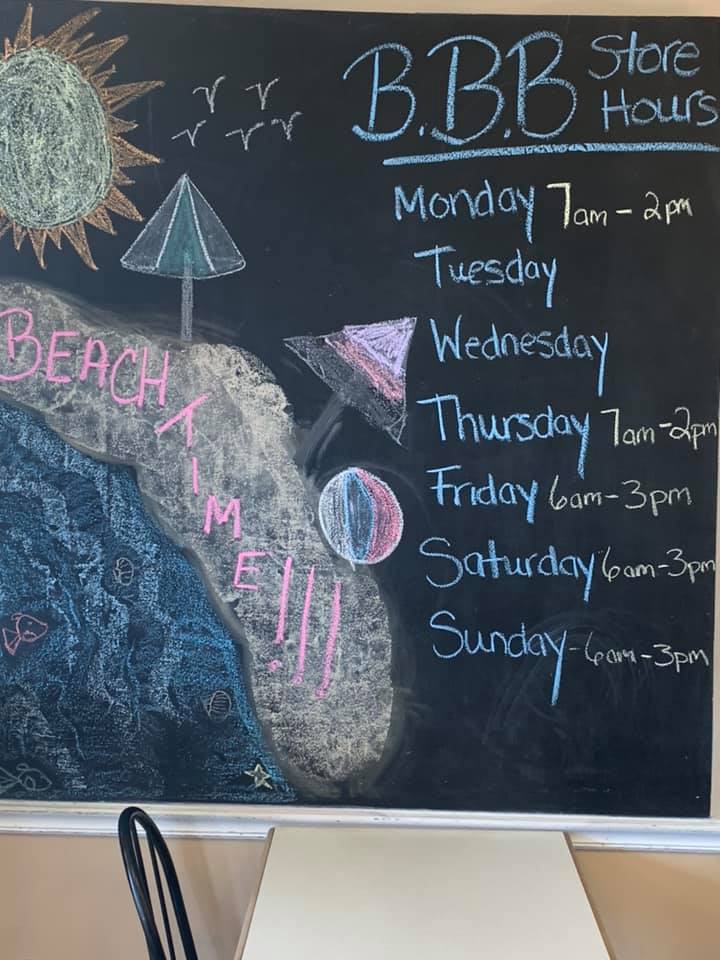 B.B.B Store Hours
Monday 7am - 2pm
Tuesday
Wednesday
Thursday 7am-2pm
Friday 6am-3pm
Saturday 6am-3pm
Sunday-6am-3pm
BEACH TIME!!!